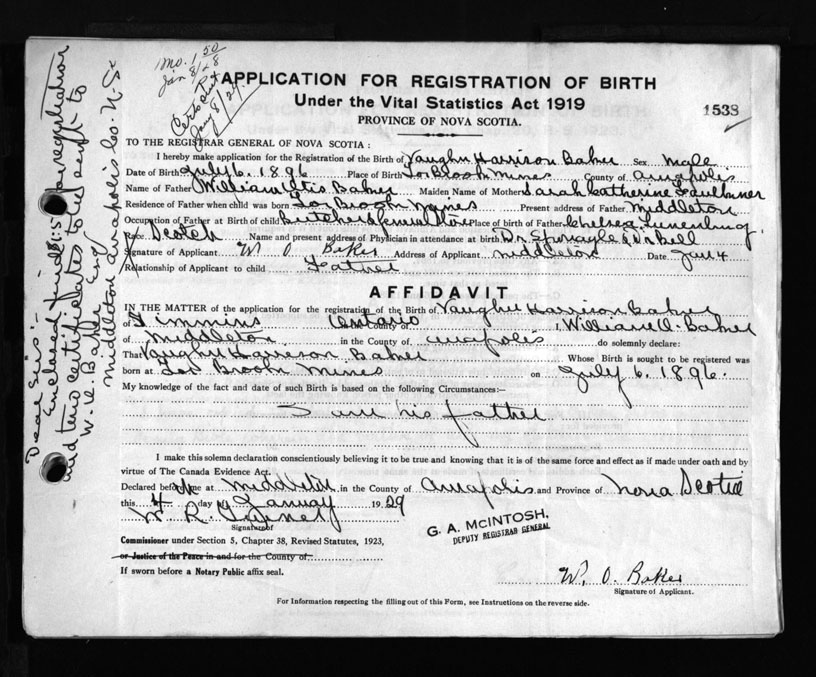 APPLICATION FOR REGISTRATION OF BIRTH
Under the Vital Statistics Act 1919
PROVINCE OF NOVA SCOTIA.
1538
Mo. 1.50
Jan 8/28
TO THE REGISTRAR GENERAL OF NOVA SCOTIA :
I hereby make application for the Registration of the Birth of Vaughn Harrison Baker Sex Male
Date of Birth July 6. 1896 Place of Birth Mines County of Annapolis
Name of Father William Otis Baker Maiden Name of Mother Sarah Katherine Faulkner
Residence of Father when child was born Mines Present address of Father Middleton
Occupation of Father at Birth of child Place of Birth of Father Chelsea Lunenburg
Race Scotch Name and present address of Physician in attendance at birth Dr Sprangle
Signature of Applicant W O Baker Address of Applicant Middleton Date Jan 4
Relationship of Applicant to child Father
AFFIDAVIT
IN THE MATTER of the application for the registration of the Birth of Vaughn Harrison Baker
of Timmins Ontario County of , William O. Baker
of Middleton in the County of Annapolis do solemnly declare:
That Vaughn Harrison Baker Whose Birth is sought to be registered was
born at Broom Mines on July 6. 1896.
My knowledge of the fact and date of such Birth is based on the following Circumstances:—
I am his father
I make this solemn declaration conscientiously believing it to be true and knowing that it is of the same force and effect as if made under oath and by
virtue of The Canada Evidence Act.
Declared before me at Middleton in the County of Annapolis and Province of Nova Scotia
this 4th day of January 1929
W. R.
Signature of
Commissioner under Section 5, Chapter 38, Revised Statutes, 1923,
or Justice of the Peace in and for the County of
If sworn before a Notary Public affix seal.
G. A. McINTOSH,
DEPUTY REGISTRAR GENERAL
W. O. Baker
Signature of Applicant.
For Information respecting the filling out of this Form, see Instructions on the reverse side.
Dear Sirs:-
Enclosed find $1.50 for registration
and two certificates to be sent to
W. O. Baker Esq
Middleton Annapolis Co. N.S.